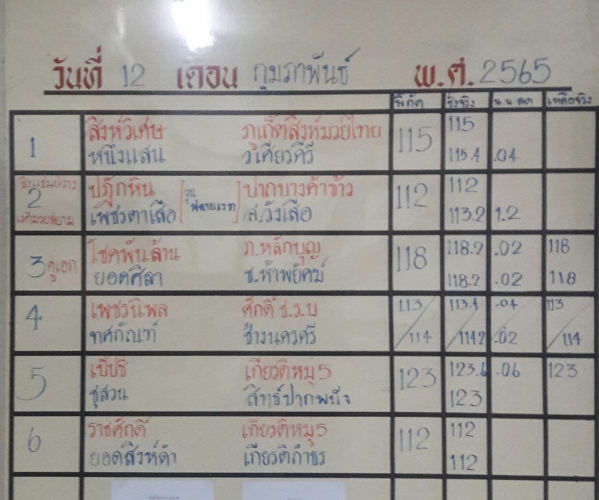 วันที่ 12 เดือน กุมภาพันธ์ พ.ศ. 2565
พิกัด ชั่งจริง น.น.ลด เหลือจริง
1 สิงห์วิเศษ ภูเก็ตสิงห์มวยไทย 115 115
หนึ่งแสน ว.เศียรคีรี 115.4 .04
2 ปฏักหิน ปากบางค้าข้าว 112 112
เพชรตาเสือ ส.วังเสือ 113.2 1.2
3 คู่เอก โชคพันล้าน ภ.หลักบุญ 118 118.2 .02 118
ยอดศิลา ช.ห้าพยัคฆ์ 118.2 .02 118
4 เพชรนิพล ศักดิ์ ช.ร.บ 113 113.4 .04 113
ทศกัณฑ์ ช้างนครศรี 114 114.2 .02 114
5 เกียรติหมู 5 123 123.6 .06 123
สิทธ์ปากพนัง 123
6 ราชศักดิ์ เกียรติหมู 5 112 112
ยอดสิงห์ดำ เกียรติกำธร 112